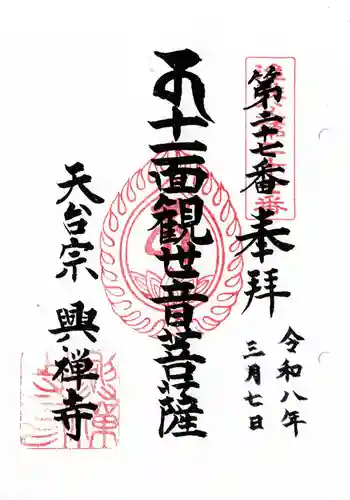 第二十七番
奉拝
令和八年
三月七日
十一面観世音菩薩
天台宗
興禅寺